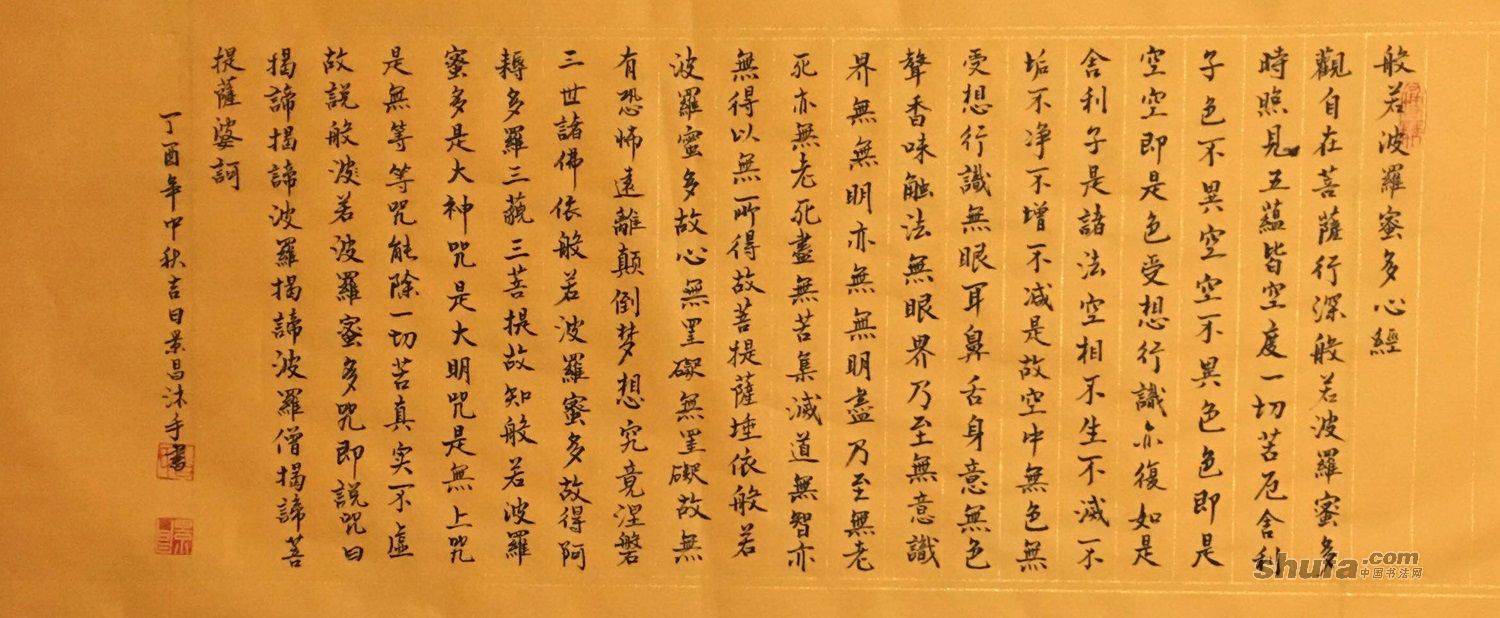 般若波羅蜜多心經
觀自在菩薩行深般若波羅蜜多
時照見五蘊皆空度一切苦厄舍利
子色不異空空不異色色即是
空空即是色受想行識亦復如是
舍利子是諸法空相不生不滅不
垢不净不增不减是故空中無色無
受想行識無眼耳鼻舌身意無色
聲香味触法無眼界乃至無意識
界無無明亦無無明盡乃至無老
死亦無老死盡無苦集滅道無智亦
無得以無所得故菩提薩埵依般若
波羅蜜多故心無罣礙無罣礙故無
有恐怖遠離顛倒梦想究竟涅磐
三世諸佛依般若波羅蜜多故得阿
耨多羅三藐三菩提故知般若波羅
蜜多是大神咒是大明咒是無上咒
是無等等咒能除一切苦真实不虛
故説般波若波羅蜜多咒即説咒曰
揭諦揭諦波羅揭諦波羅僧揭諦菩
提薩婆訶
丁酉年中秋吉日景昌沐手書
shufa.com
中国书法网